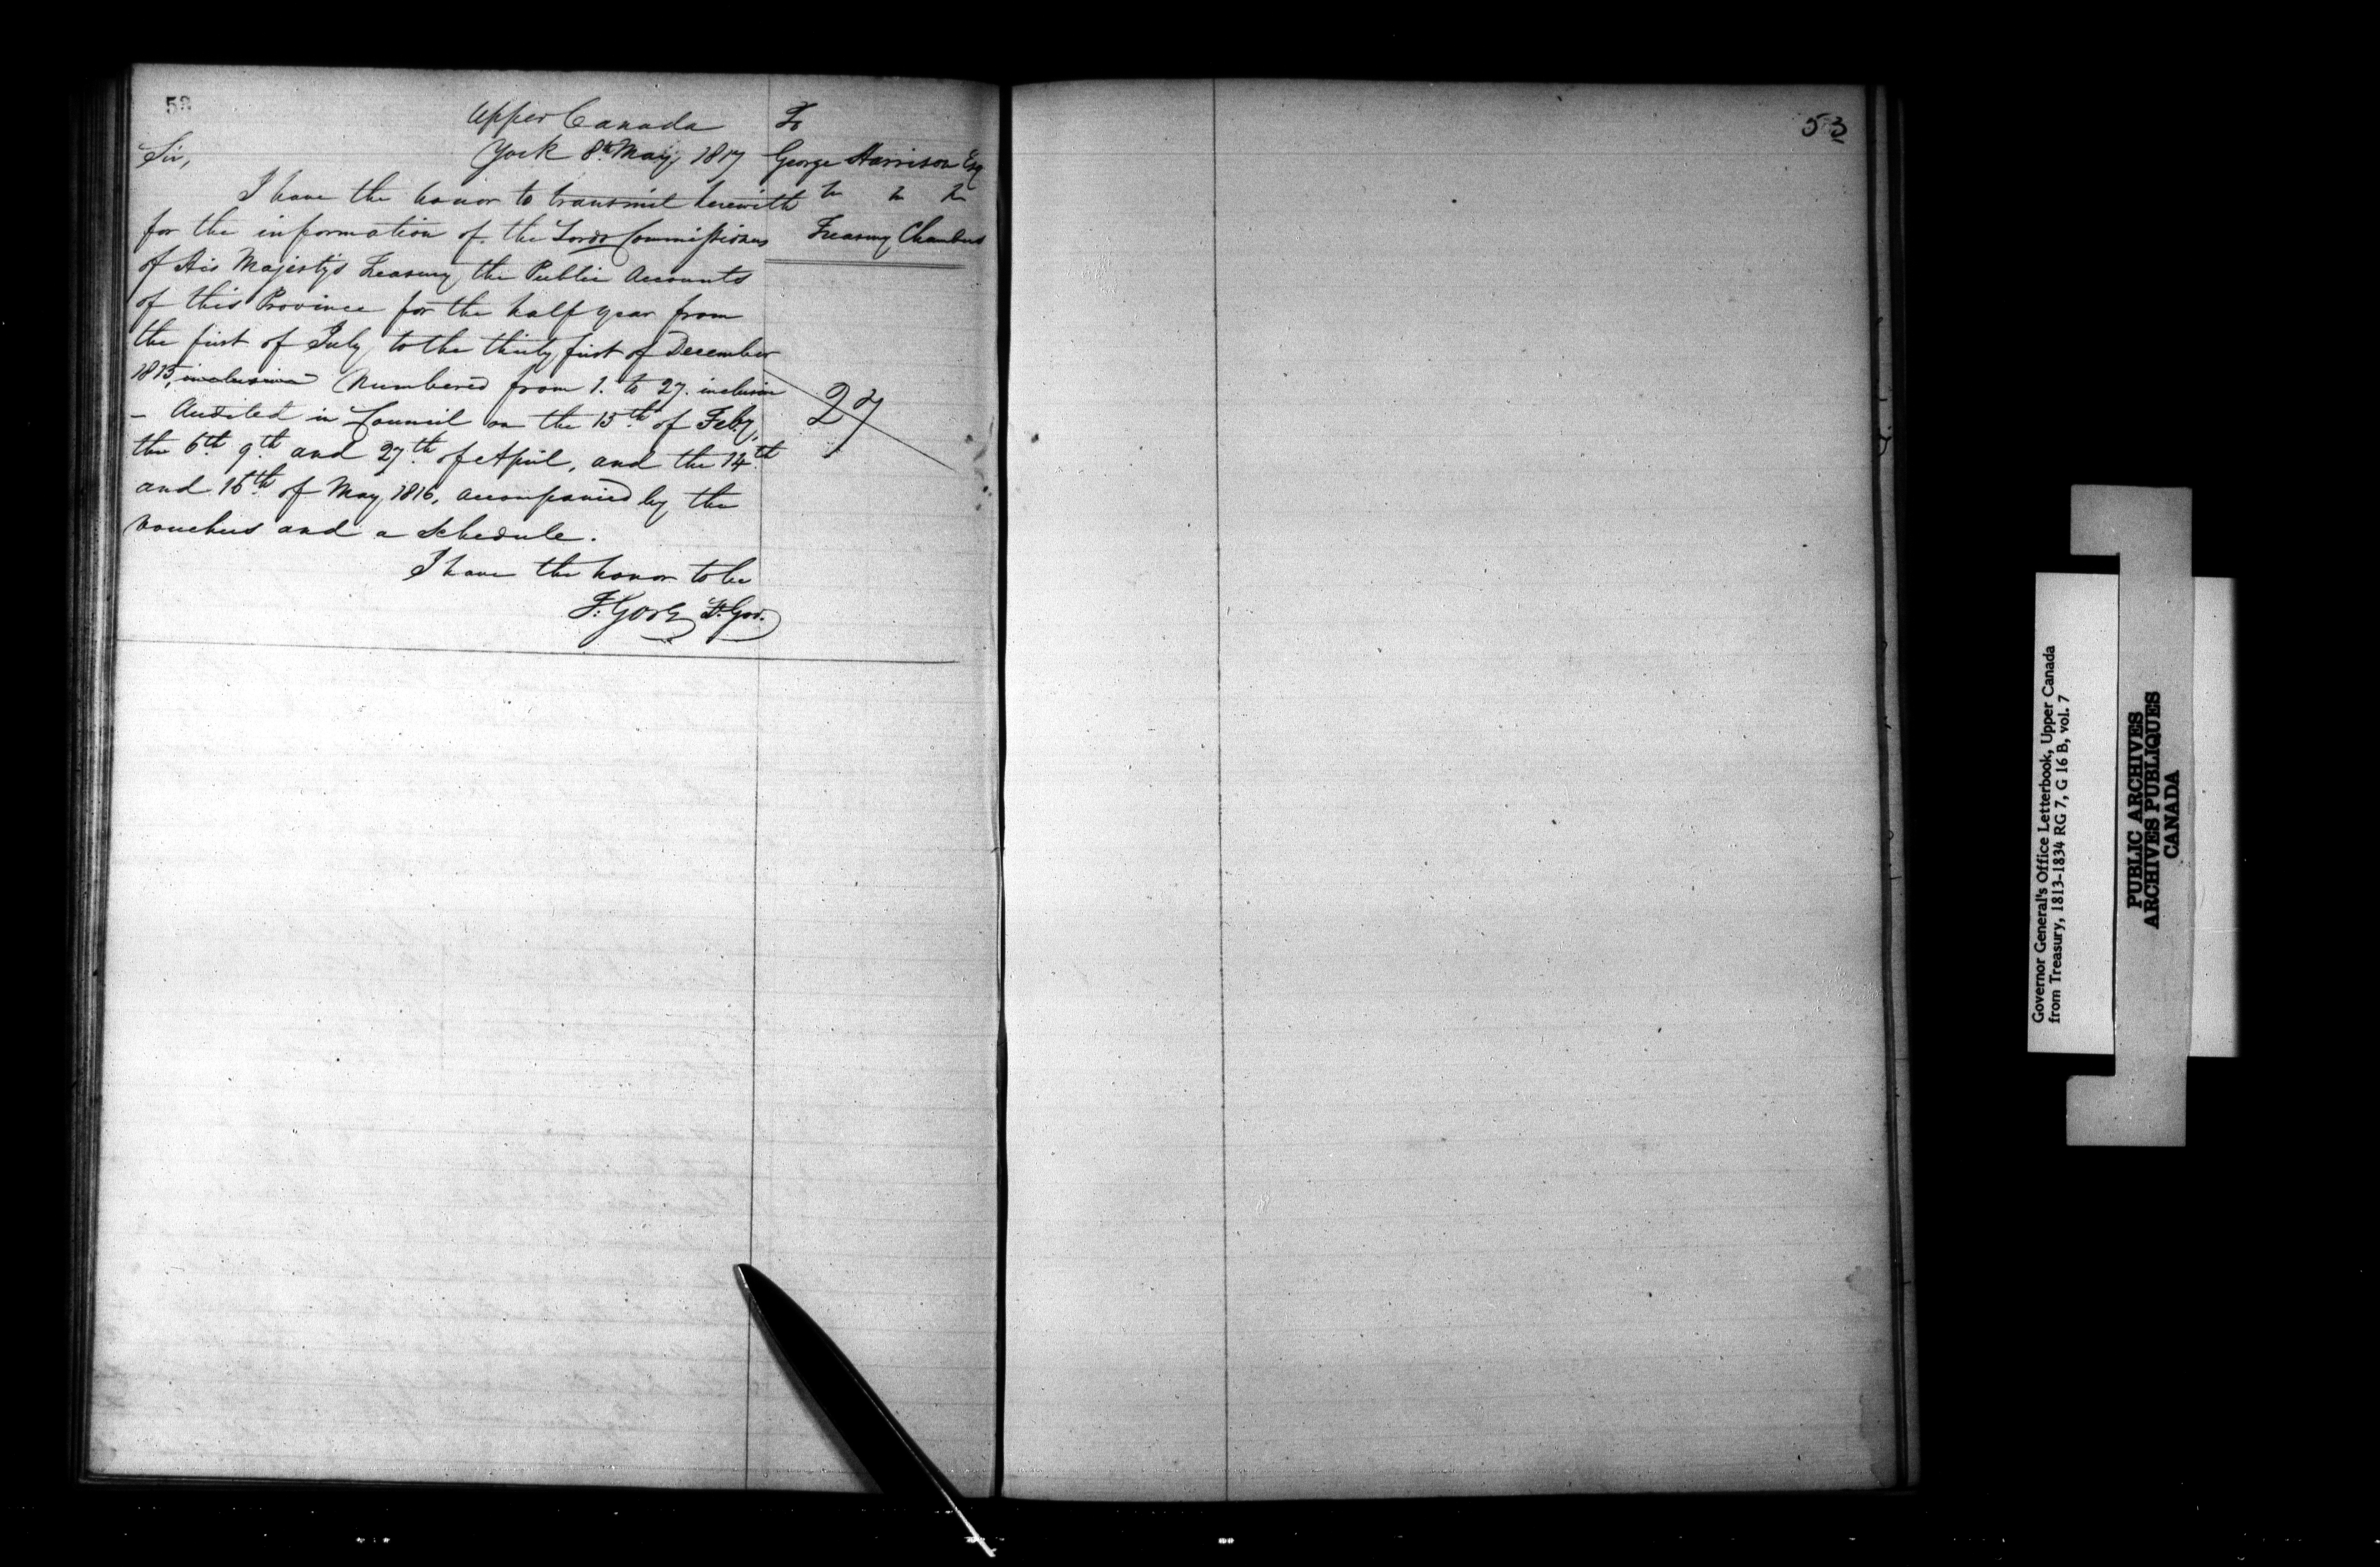 Upper Canada
York 8th May, 1817
To
George Harrison Esq
Treasury Chambers
Sir,
I have the honor to transmit herewith
for the information of the Lords Commissioners
of His Majesty's Treasury the Public Accounts
of this Province for the half year from
the first of July to the thirty first of December
1815, inclusive Numbered from 1. to 27. inclusive
- Audited in Council on the 15th of Feby,
the 6th 9th and 27th of April, and the 14th
and 16th of May 1816, accompanied by the
Vouchers and a Schedule.
I have the honor to be
F. Gore Lt. Gov.
27
53
Governor General's Office Letterbook, Upper Canada
from Treasury, 1813-1834 RG 7, G 16 B, vol. 7
PUBLIC ARCHIVES
ARCHIVES PUBLIQUES
CANADA